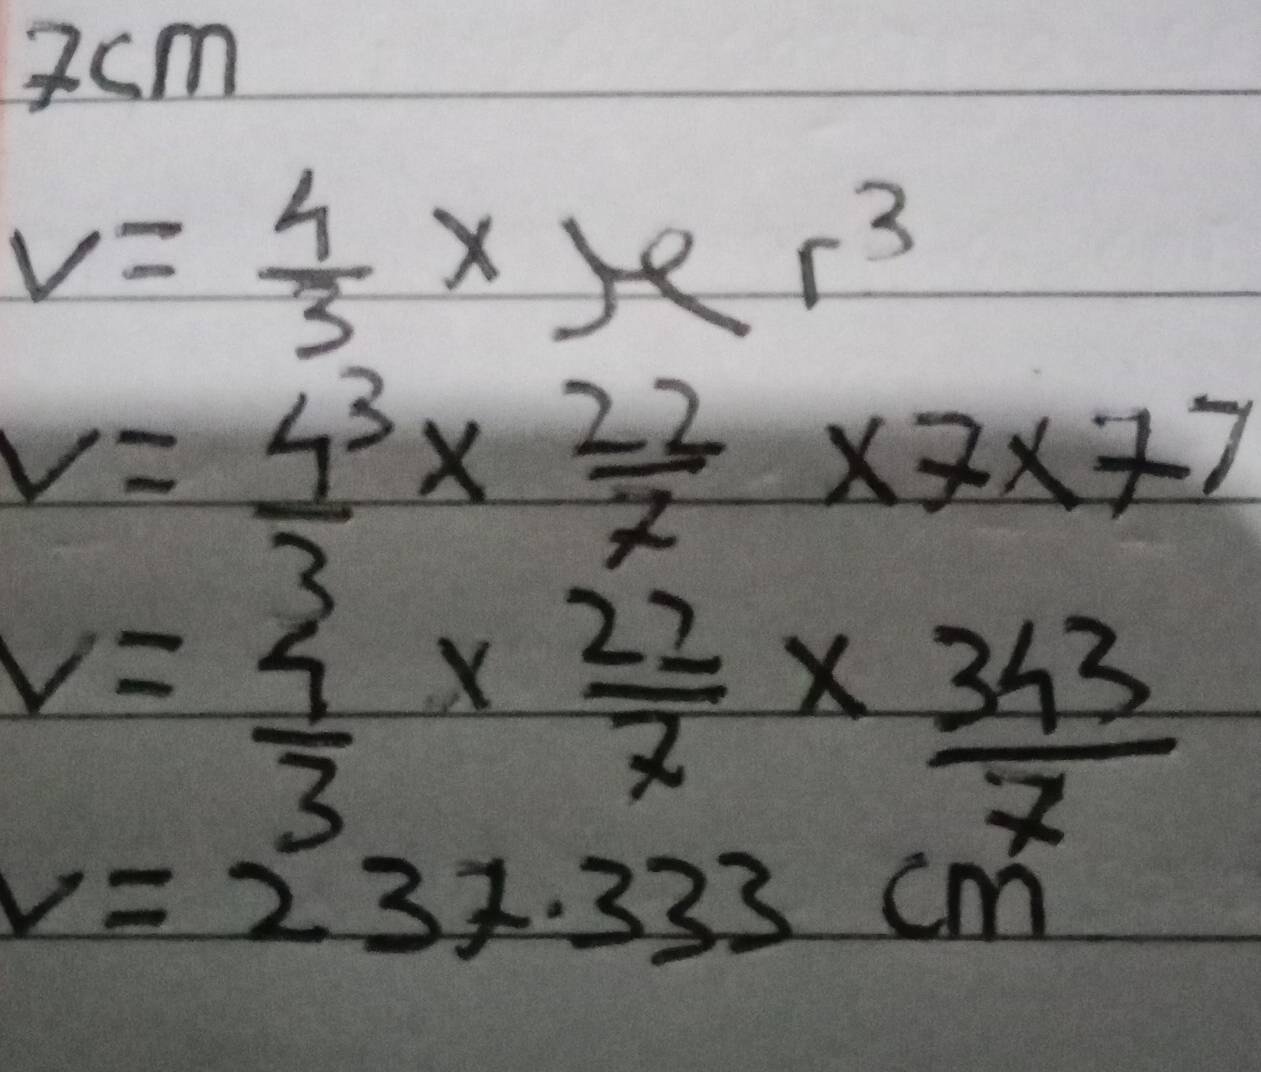 7cm
V = 4/3 x π r³
V = 4³/3 x 22/7 x 7 x 7 7
V = 4/3 x 22/7 x 343/7
V = 237.333 cm